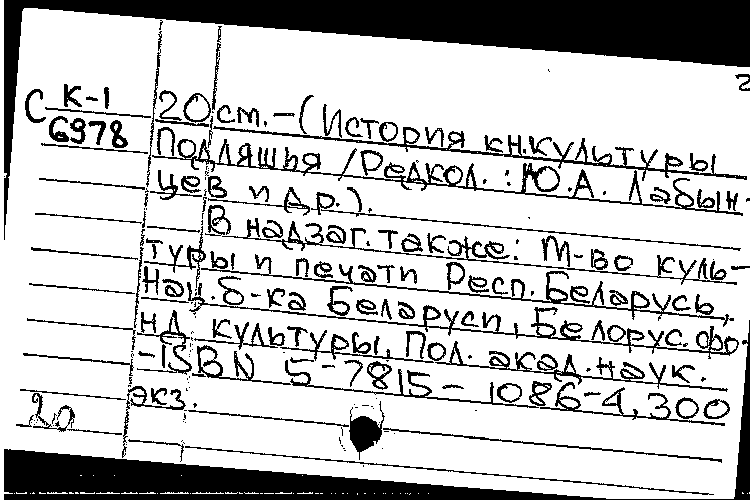 2
С К-1
6978
20 см. – (История кн.культуры
Подляшья / Редкол. : Ю.А. Лабын-
цев и др.).
В надзаг. также: М-во куль-
туры и печати Респ. Беларусь,
Нац. б-ка Беларуси, Белорус. фо-
нд культуры, Пол. акад. наук.
-ISBN 5-7815-1086-4, 300
экз.
20